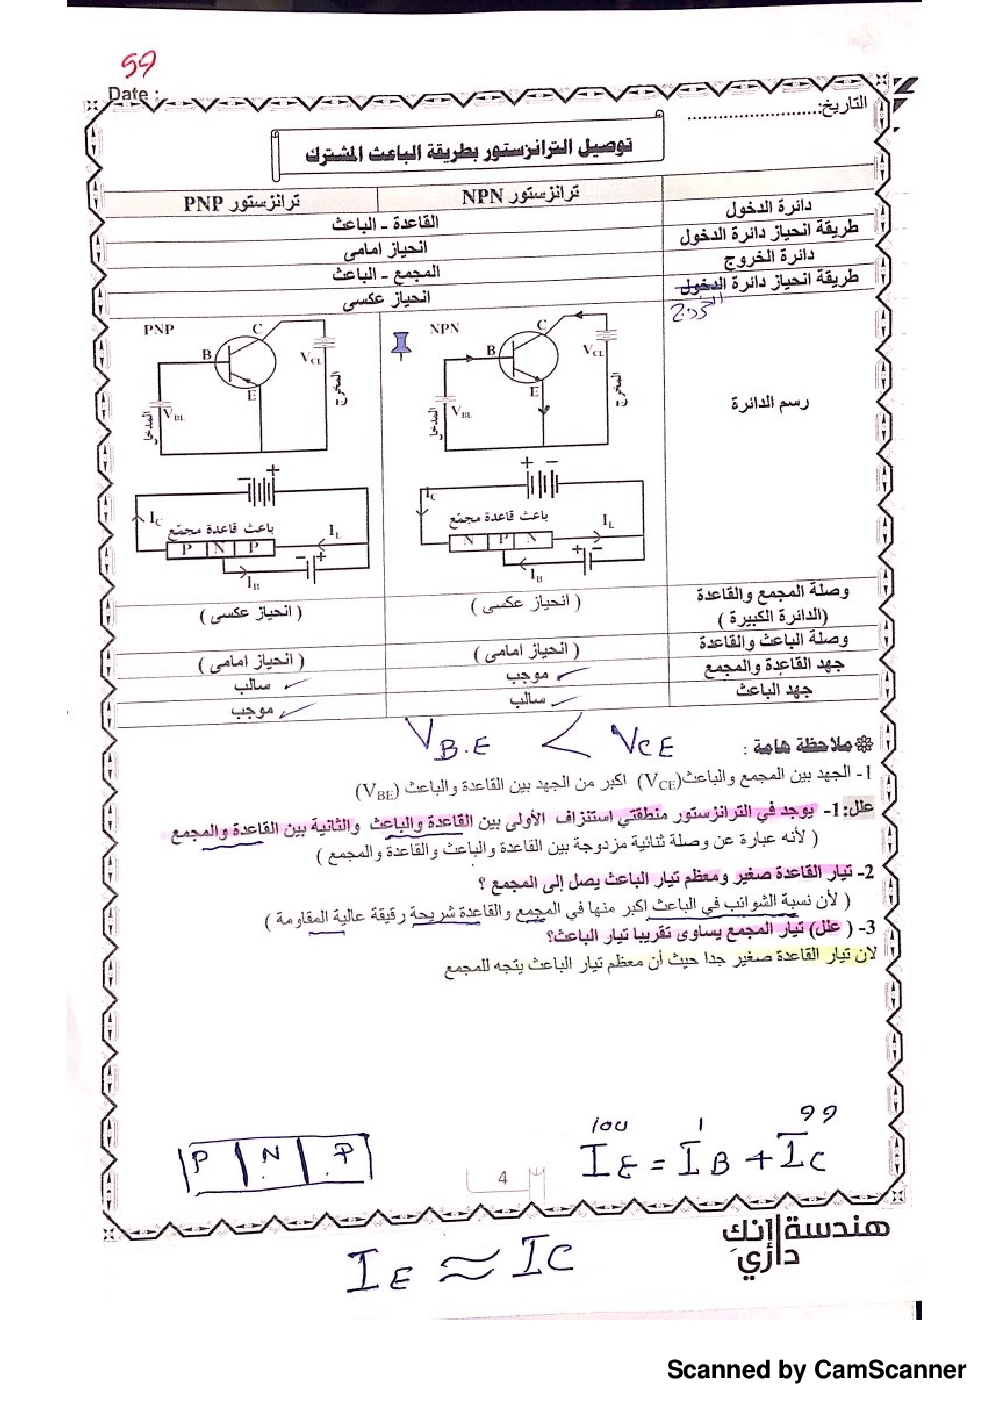 59
Date :
التاريخ:........................
توصيل الترانزستور بطريقة الباعث المشترك
ترانزستور NPN
ترانزستور PNP
دائرة الدخول
القاعدة - الباعث
طريقة انحياز دائرة الدخول
انحياز امامى
دائرة الخروج
المجمع - الباعث
طريقة انحياز دائرة الدخول
الخروج
انحياز عكسى
رسم الدائرة
NPN
C
B
E
VCL
VBL
المخرج
المدخل
PNP
C
B
E
VCL
VBL
المخرج
المدخل
+ −
IC
باعث قاعدة مجمّع
N P N
IL
+ −
IB
− +
IC
باعث قاعدة مجمّع
P N P
IL
− +
IB
وصلة المجمع والقاعدة
(الدائرة الكبيرة )
( انحياز عكسى )
( انحياز عكسى )
وصلة الباعث والقاعدة
( انحياز امامى )
( انحياز امامى )
جهد القاعدة والمجمع
موجب
سالب
جهد الباعث
سالب
موجب
VB.E < VCE
ملاحظة هامة :
1- الجهد بين المجمع والباعث(VCE) اكبر من الجهد بين القاعدة والباعث (VBE)
علل:1- يوجد في الترانزستور منطقتي استنزاف الأولى بين القاعدة والباعث والثانية بين القاعدة والمجمع
( لأنه عبارة عن وصلة ثنائية مزدوجة بين القاعدة والباعث والقاعدة والمجمع )
2- تيار القاعدة صغير ومعظم تيار الباعث يصل الى المجمع ؟
( لأن نسبة الشوائب في الباعث اكبر منها في المجمع والقاعدة شريحة رقيقة عالية المقاومة )
3- ( علل) تيار المجمع يساوى تقريبا تيار الباعث؟
لان تيار القاعدة صغير جدا حيث أن معظم تيار الباعث يتجه للمجمع
100 1 99
IE = IB + IC
P N P
4
هندسة إنك داري
IE ≈ IC
Scanned by CamScanner